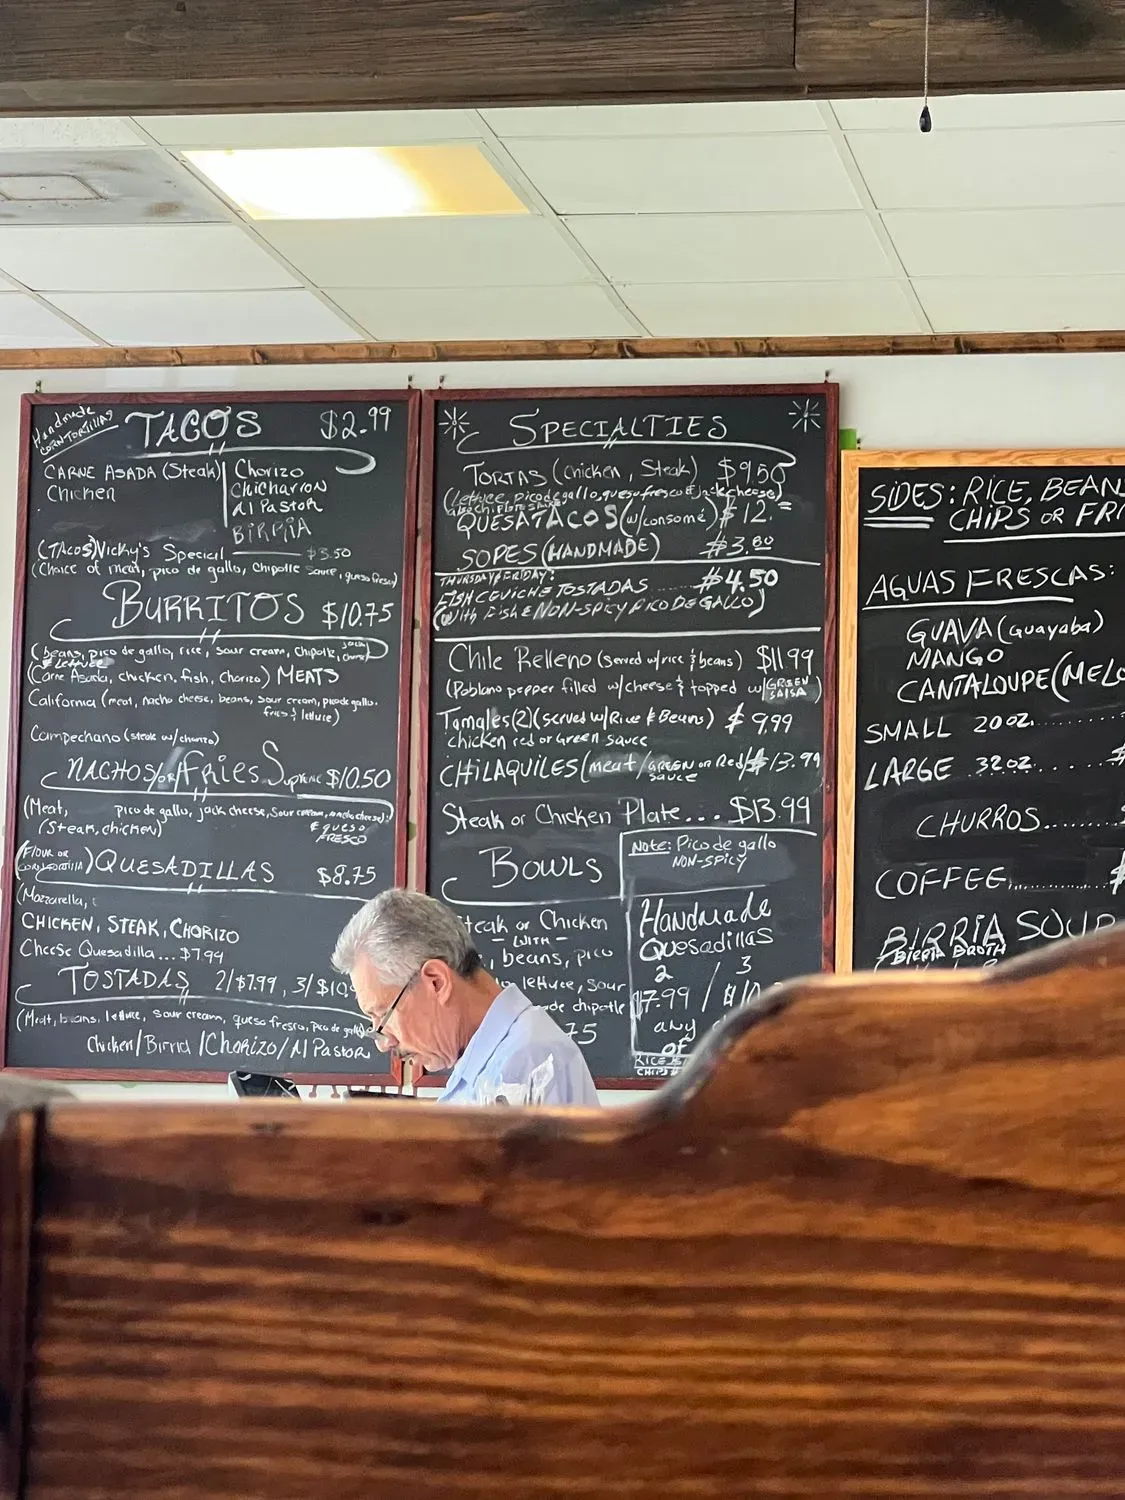 Handmade
CORN TORTILLAS
TACOS $2.99
CARNE ASADA (Steak)
Chicken
Chorizo
Chicharron
Al Pastor
BIRRIA
(TACOS) Vicky's Special $3.50
(Choice of meat, pico de gallo, Chipotle Sauce, queso fresco)
BURRITOS $10.75
(beans, pico de gallo, rice, sour cream, chipotle, jack cheese)
& Lettuce
(Carne Asada, chicken, fish, chorizo) MEATS
California (meat, nacho cheese, beans, sour cream, pico de gallo,
fries & lettuce)
Campechano (steak w/ chorizo)
NACHOS/OR FRIES SUPREME $10.50
(Meat, pico de gallo, jack cheese, sour cream, nacho cheese)
(Steak, chicken) & QUESO
FRESCO
(FLOUR OR
CORN TORTILLA) QUESADILLAS $8.75
(Mozzarella,
CHICKEN, STEAK, CHORIZO
Cheese Quesadilla... $7.99
TOSTADAS 2/$7.99, 3/$10.
(Meat, beans, lettuce, sour cream, queso fresco, pico de gallo)
Chicken/Birria/Chorizo/Al Pastor
SPECIALTIES
TORTAS (Chicken, Steak) $9.50
(lettuce, pico de gallo, queso fresco & jack cheese)
QUESATACOS (w/consomé) $12.
SOPES (HANDMADE) $3.80
THURSDAY & FRIDAY:
FISH CEVICHE TOSTADAS $4.50
(WITH FISH & NON-SPICY PICO DE GALLO)
Chile Relleno (served w/rice & beans) $11.99
(Poblano pepper filled w/cheese & topped w/GREEN
SALSA)
Tamales (2) (served w/Rice & Beans) $9.99
chicken red or Green sauce
CHILAQUILES (meat/GREEN or Red/ $13.99
SAUCE
Steak or Chicken Plate... $13.99
BOWLS
teak or Chicken
- WITH -
, beans, pico
lettuce, sour
de chipotle
75
NOTE: Pico de gallo
NON-SPICY
Handmade
Quesadillas
2 / 3
$7.99 / $10.
any
of
RICE
CHIPS
SIDES: RICE, BEAN
CHIPS OR FR
AGUAS FRESCAS:
GUAVA (Guayaba)
MANGO
CANTALOUPE (MELO
SMALL 20 OZ.
LARGE 32 OZ. $
CHURROS
COFFEE $
BIRRIA SOUP
BIRRIA BROTH